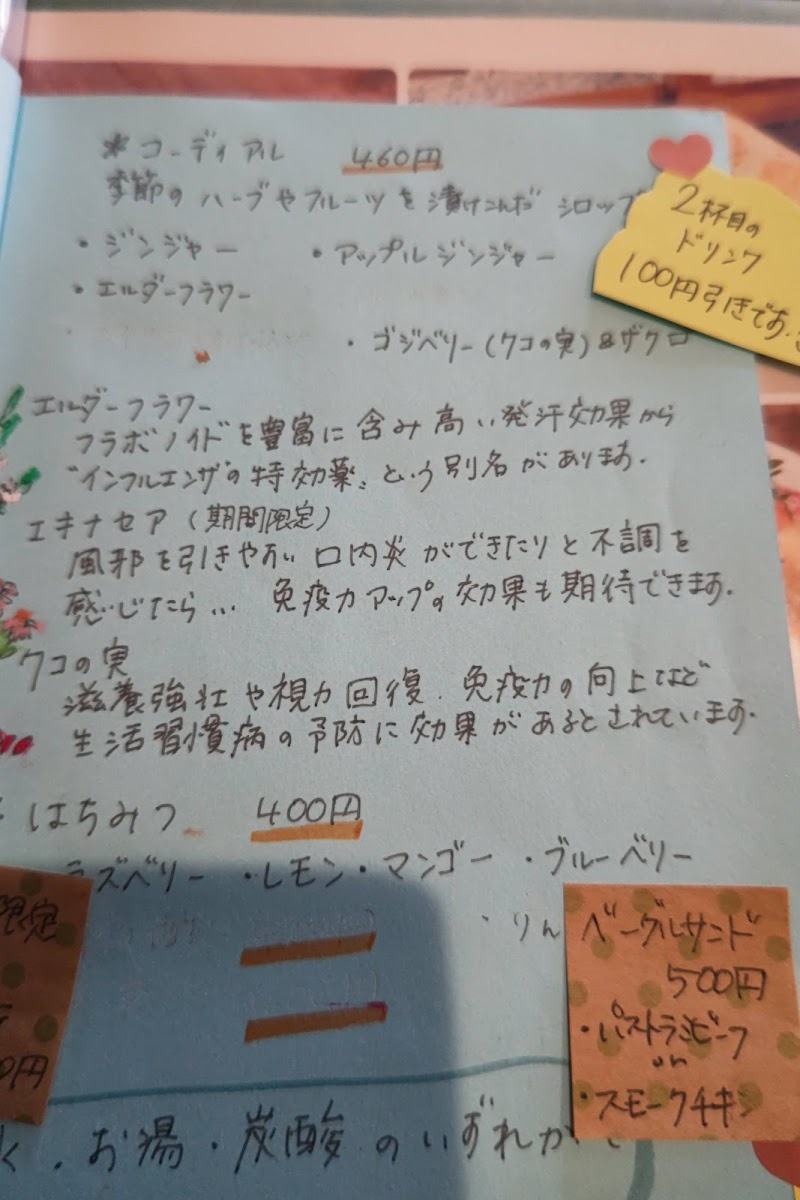 *コーディアル 460円
季節のハーブやフルーツを漬けこんだシロップ
・ジンジャー ・アップルジンジャー
・エルダーフラワー
・ゴジベリー(クコの実)&ザクロ
2杯目の
ドリンク
100円引きです.
エルダーフラワー
フラボノイドを豊富に含み高い発汗効果から
"インフルエンザの特効薬"という別名があります.
エキナセア(期間限定)
風邪を引きやすい 口内炎ができたりと不調を
感じたら... 免疫力アップの効果も期待できます.
クコの実
滋養強壮や視力回復.免疫力の向上など
生活習慣病の予防に効果があるとされています.
はちみつ 400円
ラズベリー ・レモン・マンゴー ・ブルーベリー
・りん
限定
0円
ベーグルサンド
500円
・パストラミビーフ
or
・スモークチキン
.お湯・炭酸のいずれか